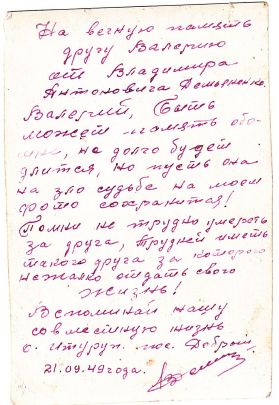 На вечную память
другу Валерию
от Владимира
Антоновича Демьяненко.
Валерий, Быть
может память обо
мне, не долго будет
длится, но пусть она
на зло судьбе на моем
фото сохранится!
Помни не трудно умереть
за друга, трудней иметь
такого друга за которого
не жалко отдать свою
жизнь!
Вспоминай нашу
совместную жизнь
о. Итуруп. пос. Добрый
21.09.49 года.